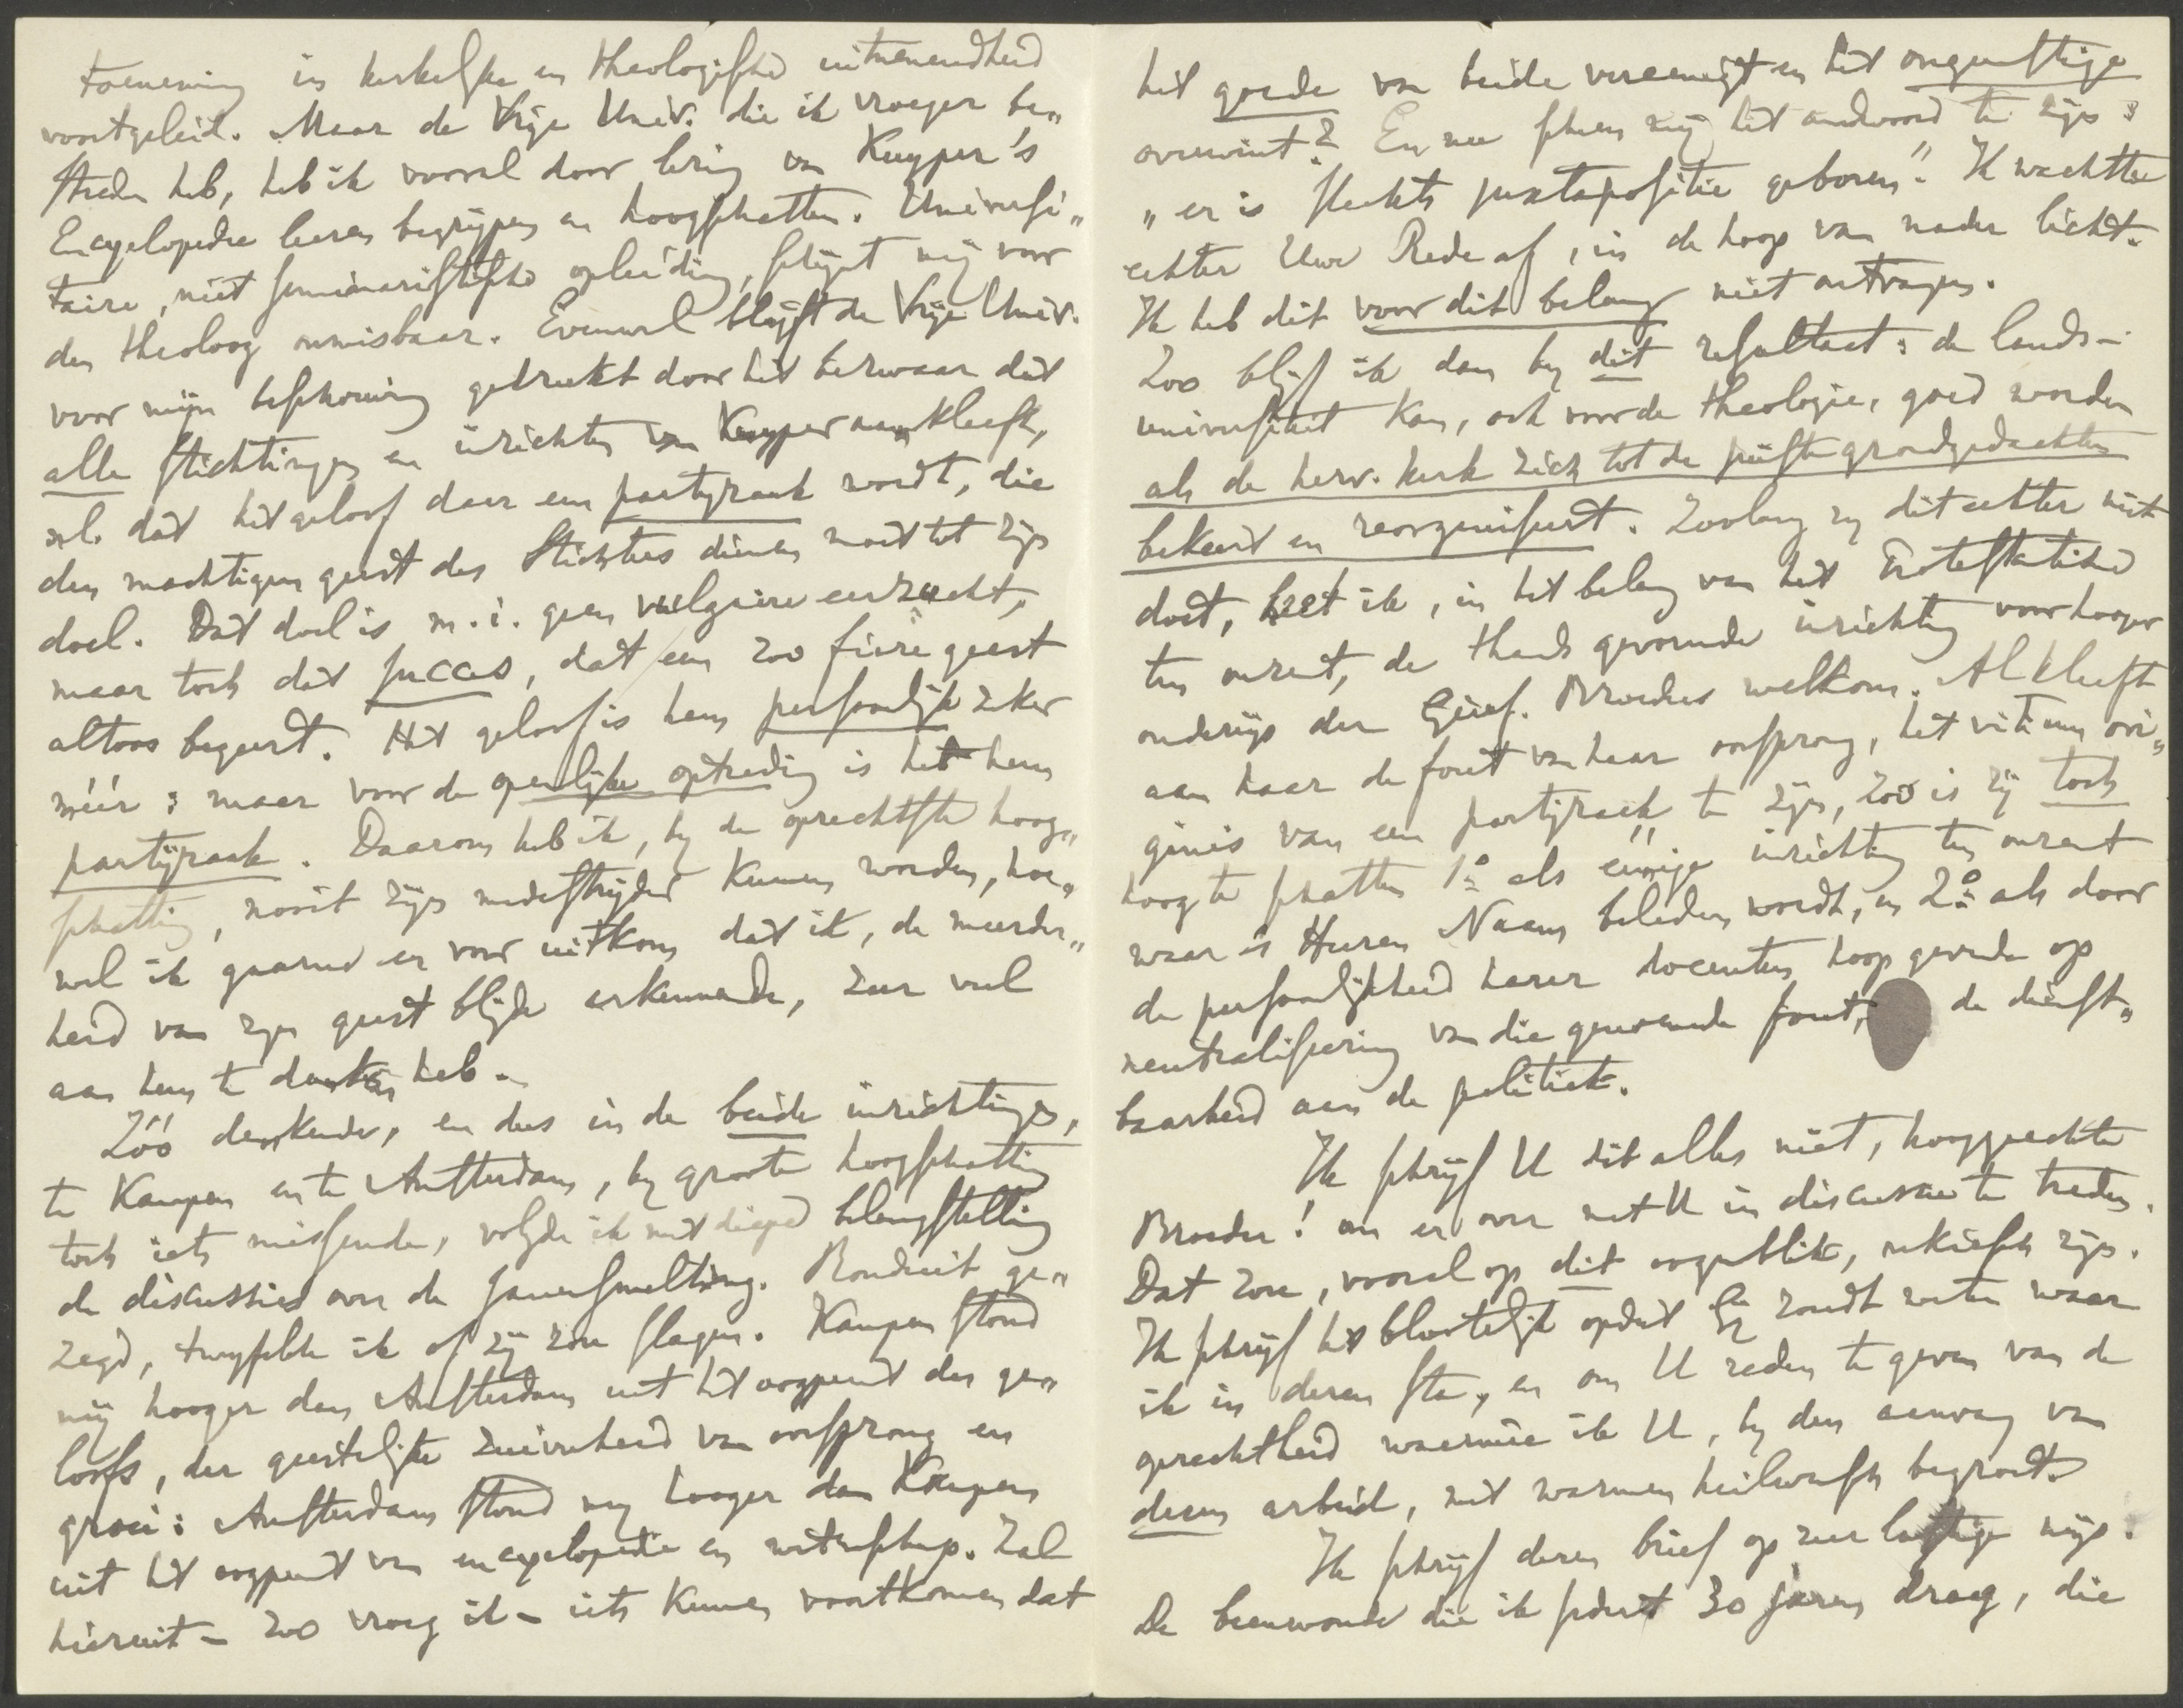 toeneming in kerkelijke en theologische uitnemendheid
voortgeleid. Maar de Vrije Univ. die ik vroeger be„
streden heb, heb ik vooral door lezing van Kuyper's
Encyclopedie leeren begrijpen en hoogschatten. Universi„
taire, niet seminaristische opleiding, schijnt mij voor
den theoloog onmisbaar. Evenwel blijft de Vrije Univ.
voor mijn beschouwing gedrukt door het bezwaar dat
alle stichtingen en inrichten van Kuyper aankleeft,
nl. dat het geloof daar een partijzaak wordt, die
den machtigen geest des Stichters dienen moet tot zijn
doel. Dat doel is m.i. geen vulgaire eerzucht,
maar toch dat succes, dat een zoo fiere geest
altoos begeert. Het geloof is hem persoonlijk zeker
méér: maar voor de openlijke optreding is het hem
partijzaak. Daarom heb ik, by de oprechtste hoog„
schatting, nooit zijn medestrijder kunnen worden, hoe„
wel ik gaarne er voor uitkom dat ik, de meerder„
heid van zijn geest blijde erkennende, zeer veel
aan hem te danken heb.
Zóó denkende, en dus in de beide inrichtingen,
te Kampen en te Amsterdam, by groote hoogschatting
toch iets missende, volgde ik met diepe belangstelling
de discussies over de samensmelting. Ronduit ge„
zegd, twyfelde ik of zij zou slagen. Kampen stond
mij hooger dan Amsterdam uit het oogpunt des ge„
loofs, der geestelijke zuiverheid van oorsprong en
groei: Amsterdam stond my hooger dan Kampen
uit het oogpunt van encyclopedie en wetenschap. Zal
hieruit – zoo vroeg ik – iets kunnen voortkomen dat
het goede van beide vereenigt en het ongunstige
overwint? En nu scheen mij het antwoord te zijn:
„er is slechts juxtapositie geboren". Ik wachtte
echter Uwe Rede af, in de hoop van nader licht.
Ik heb dit voor dit belang niet ontvangen.
Zoo blijf ik dan by dit resultaat: de lands-
universiteit kan, ook voor de theologie, goed worden
als de herv. kerk zich tot de juiste grondgedachten
bekeert en reorganiseert. Zoolang zy dit echter niet
doet, heet ik, in het belang van het Protestantisme
ten onzent, de thans gevormde inrichting voor hooger
onderwijs der Geref. Broeders welkom. Al kleeft
aan haar de fout van haar oorsprong, het vitium ori„
ginis van een partijzaak te zijn, zoo is zij toch
hoog te schatten 1º als eenige inrichting ten onzent
waar 's Heeren Naam beleden wordt, en 2º als door
de persoonlijkheid harer docenten hoop gevende op
neutraliseering van die genoemde fout, de dienst„
baarheid aan de politiek.
Ik schrijf U dit alles niet, hooggeachte
Broeder! om er over met U in discussie te treden.
Dat zou, vooral op dit oogenblik, onkiesch zijn.
Ik schrijf het blootelijk opdat Gy zoudt weten waar
ik in dezen sta, en om U reden te geven van de
oprechtheid waarmee ik U, by den aanvang van
dezen arbeid, met warmen heilwensch begroet.
Ik schrijf dezen brief op zeer lastige wijs.
De beenwonde die ik sedert 30 jaren draag, die